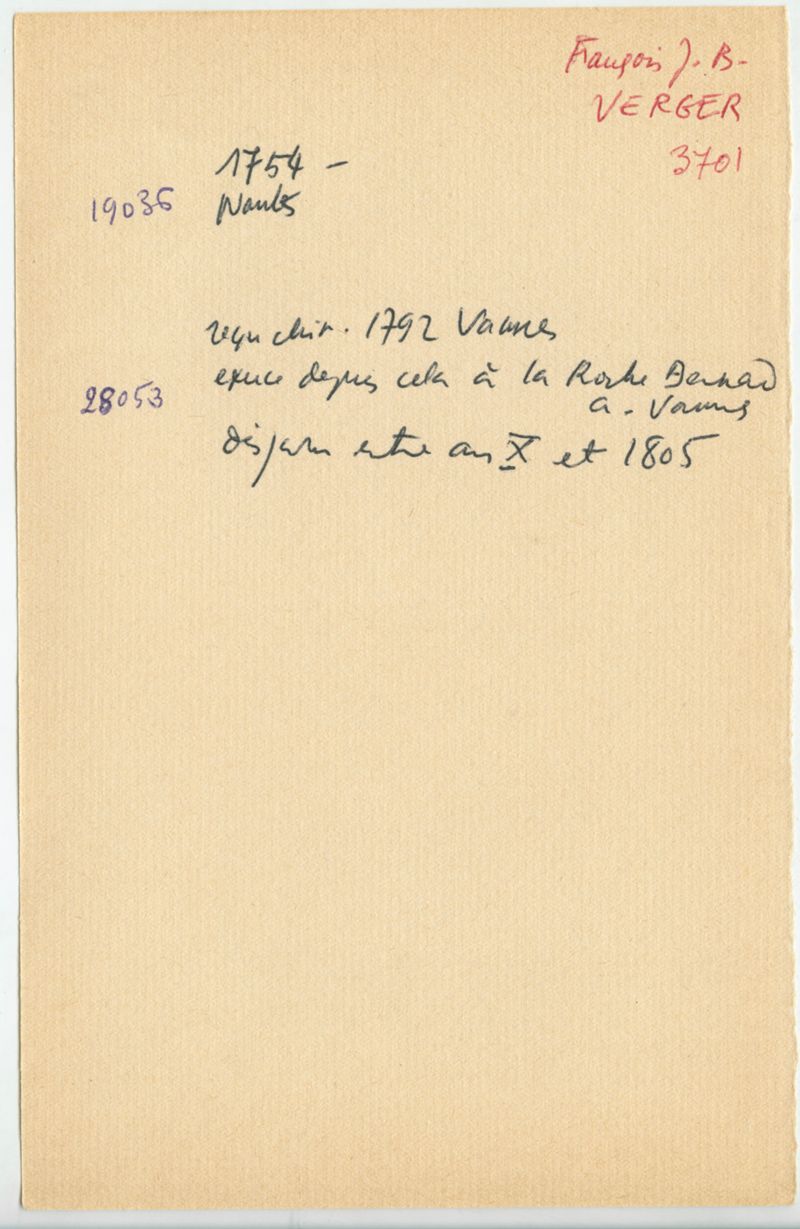 François J. B.
VERGER
3701
1754 -
19036 Nantes
reçu chir. 1792 Vannes
exerce depuis cela à la Roche Bernard
28053
a. Vannes
disparu entre an X et 1805